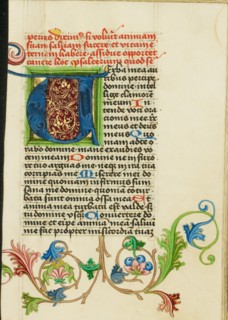 petiero dicimus si voluerit animam
suam salvam facere et vitam e
ternam habere assidue oportet
cantare hoc psalterium quod se
Erba mea au
ribus percipe
domine intel
lige clamorem
meum In
tende voci ora
tionis mee rex
meus et deus
meus Quo
niam ad te o
rabo domine mane exaudies vo
cem meam Domine ne in furo
re tuo arguas me neqz in ira tua
corripias me Miserere mei do
mine quoniam infirmus sum
sana me domine quoniam contur
bata sunt omnia ossa mea Et
anima mea turbata est valde sz
tu domine usqz Convertere do
mine et eripe animam meam salvum
me fac propter misericordiam tuam